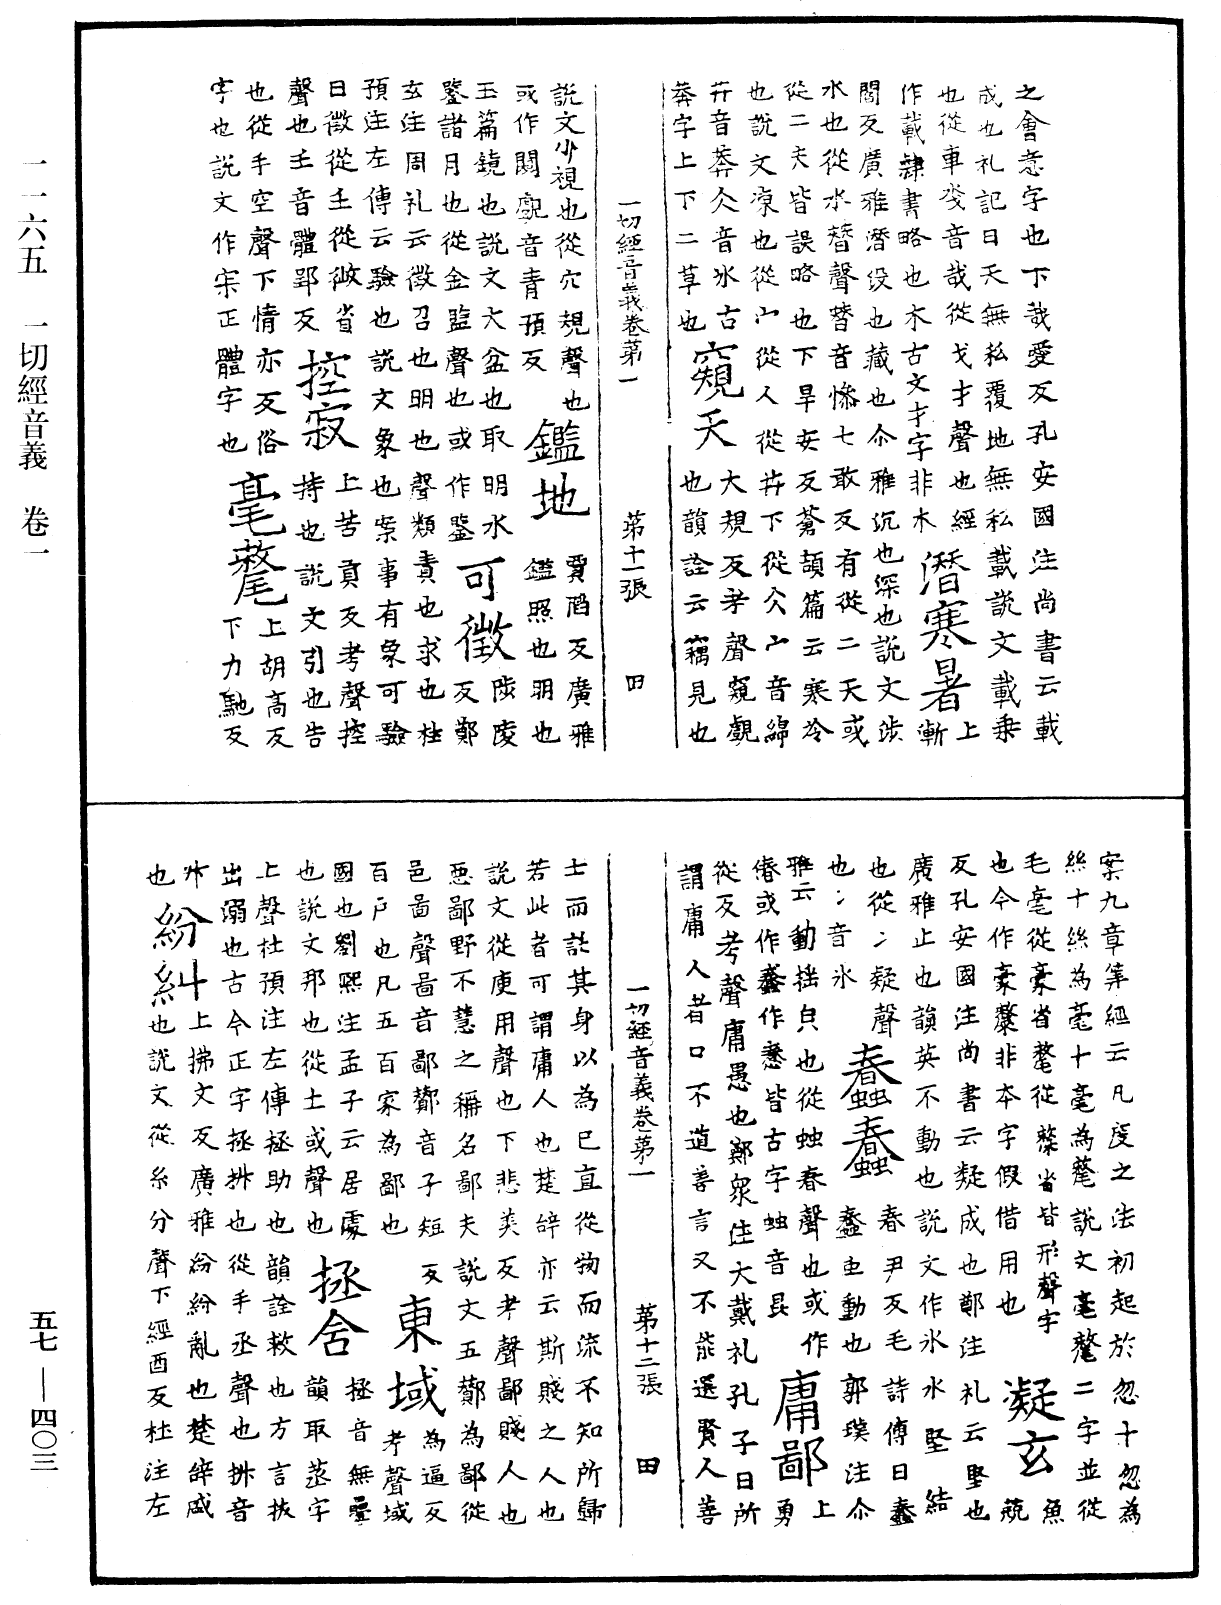 之會意字也下哉愛反孔安國注尚書云載
成也礼記曰天無私覆地無私載說文載乗
也從車𢦏音哉從戈才聲也經
作載隷書略也木古文才字非木
潛寒暑
上
漸
閻反廣雅潛没也藏也尒雅沉也深也說文涉
水也從水朁聲朁音慘七敢反有從二天或
從二夫皆誤略也下旱安反蒼頡篇云寒冷
也說文凍也從宀從人從茻下從仌宀音綿
茻音莽仌音氷古
莽字上下二草也
窺天
大規反考聲窺覰
也韻詮云竊見也
一切經音義卷第一 第十一張 田
說文小視也從穴規聲也
或作闚覰音青預反
鑑地
賈陷反廣雅
鑑照也明也
玉篇鏡也說文大盆也取明水
鑒諸月也從金監聲也或作鑒
可徵
陟陵
反鄭
玄注周礼云徵召也明也聲類責也求也杜
預注左傳云驗也說文象也案事有象可驗
曰徵從𡈼從微省
聲也𡈼音體郢反
控寂
上苦貢反考聲控
持也說文引也告
也從手空聲下情亦反俗
字也說文作宋正體字也
毫氂
上胡高反
下力馳反
案九章筭經云凡度之法初起於忽十忽為
絲十絲為毫十毫為氂說文毫氂二字並從
毛毫從豪省氂從犛省皆形聲字
也今作豪釐非本字假借用也
凝玄
魚
兢
反孔安國注尚書云凝成也鄭注礼云堅也
廣雅止也韻英不動也說文作冰水堅結
也從冫疑聲
也冫音氷
蠢蠢
春尹反毛詩傳曰蠢
蠢虫動也郭璞注尒
雅云動揺皃也從䖵春聲也或作
偆或作𧖙作惷皆古字䖵音昆
庸鄙
上
勇
從反考聲庸愚也鄭衆注大戴礼孔子曰所
謂庸人者口不道善言又不能選賢人善
一切經音義卷第一 第十二張 田
士而託其身以為己直從物而流不知所歸
若此者可謂庸人也楚辞亦云斯賤之人也
說文從庚用聲也下悲美反考聲鄙賤人也
惡鄙野不慧之稱名鄙夫說文五酇為鄙從
邑啚聲啚音鄙酇音子短反
百戶也凡五百家為鄙也
東域
考聲域
為逼反
國也劉熙注孟子云居處
也說文邦也從土或聲也
拯含
拯音無疊
韻取蒸字
上聲杜預注左傳拯助也韻詮救也方言拔
出溺也古今正字拯抍也從手丞聲也抍音
升
也
紛糾
上拂文反廣雅紛紛亂也楚辞咸
也說文從糸分聲下經酉反杜注左
一一六五 一切經音義 卷一
五七—四〇三